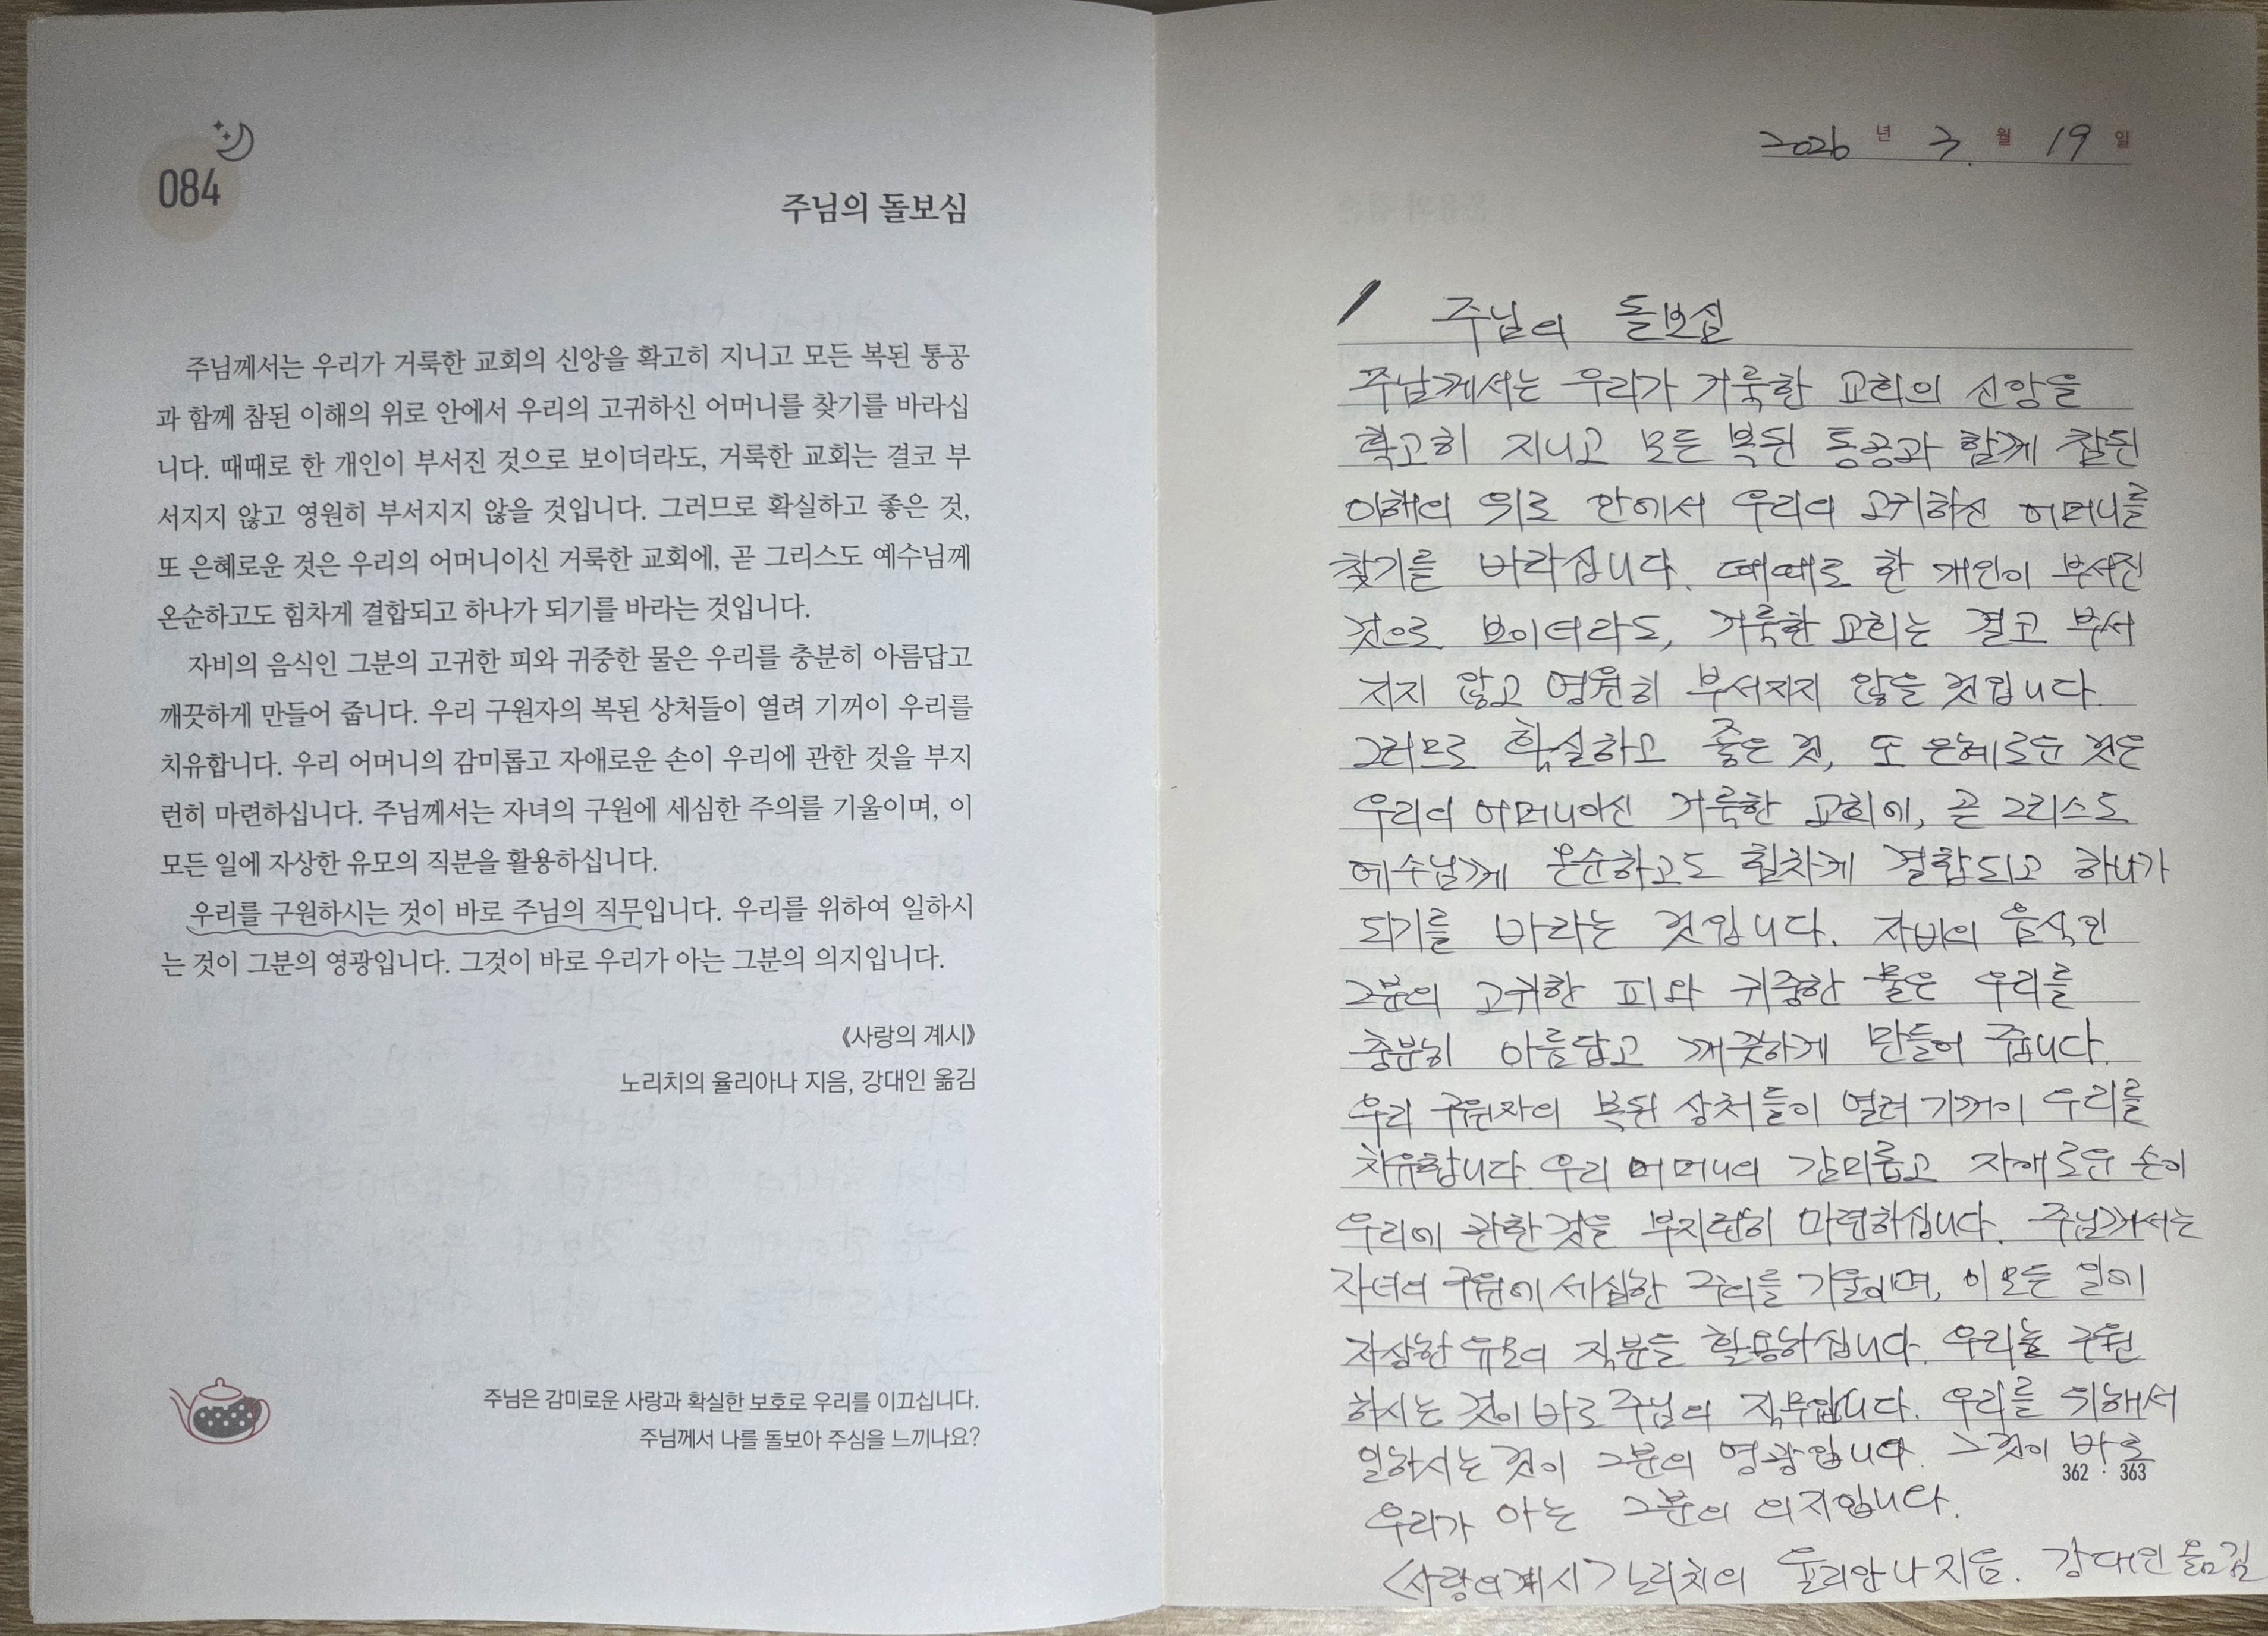 084
주님의 돌보심
주님께서는 우리가 거룩한 교회의 신앙을 확고히 지니고 모든 복된 통공
과 함께 참된 이해의 위로 안에서 우리의 고귀하신 어머니를 찾기를 바라십
니다. 때때로 한 개인이 부서진 것으로 보이더라도, 거룩한 교회는 결코 부
서지지 않고 영원히 부서지지 않을 것입니다. 그러므로 확실하고 좋은 것,
또 은혜로운 것은 우리의 어머니이신 거룩한 교회에, 곧 그리스도 예수님께
온순하고도 힘차게 결합되고 하나가 되기를 바라는 것입니다.
자비의 음식인 그분의 고귀한 피와 귀중한 물은 우리를 충분히 아름답고
깨끗하게 만들어 줍니다. 우리 구원자의 복된 상처들이 열려 기꺼이 우리를
치유합니다. 우리 어머니의 감미롭고 자애로운 손이 우리에 관한 것을 부지
런히 마련하십니다. 주님께서는 자녀의 구원에 세심한 주의를 기울이며, 이
모든 일에 자상한 유모의 직분을 활용하십니다.
우리를 구원하시는 것이 바로 주님의 직무입니다. 우리를 위하여 일하시
는 것이 그분의 영광입니다. 그것이 바로 우리가 아는 그분의 의지입니다.
《사랑의 계시》
노리치의 율리아나 지음, 강대인 옮김
주님은 감미로운 사랑과 확실한 보호로 우리를 이끄십니다.
주님께서 나를 돌보아 주심을 느끼나요?
2026 년 3. 월 19 일
주님의 돌보심
주님께서는 우리가 거룩한 교회의 신앙을
확고히 지니고 모든 복된 통공과 함께 참된
이해의 위로 안에서 우리의 고귀하신 어머니를
찾기를 바라십니다. 때때로 한 개인이 부서진
것으로 보이더라도, 거룩한 교회는 결코 부서
지지 않고 영원히 부서지지 않을 것입니다.
그러므로 확실하고 좋은 것, 또 은혜로운 것은
우리의 어머니이신 거룩한 교회에, 곧 그리스도
예수님께 온순하고도 힘차게 결합되고 하나가
되기를 바라는 것입니다. 자비의 음식인
그분의 고귀한 피와 귀중한 물은 우리를
충분히 아름답고 깨끗하게 만들어 줍니다.
우리 구원자의 복된 상처들이 열려 기꺼이 우리를
치유합니다. 우리 어머니의 감미롭고 자애로운 손이
우리에 관한 것을 부지런히 마련하십니다. 주님께서는
자녀의 구원에 세심한 주의를 기울이며, 이 모든 일에
자상한 유모의 직분을 활용하십니다. 우리를 구원
하시는 것이 바로 주님의 직무입니다. 우리를 위해서
일하시는 것이 그분의 영광입니다. 그것이 바로
362 · 363
우리가 아는 그분의 의지입니다.
<사랑의 계시> 노리치의 율리안나 지음. 강대인 옮김